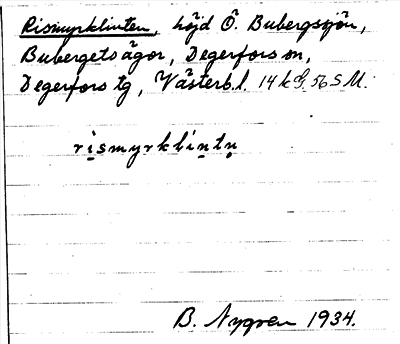 Rismyrklinten, höjd Ö. Bubergssjön,
Bubergets ägor, Degerfors sn,
Degerfors tg, Västerb.l. 14 kg. 56 S M.
rismyrklintn
B. Nygren 1934.